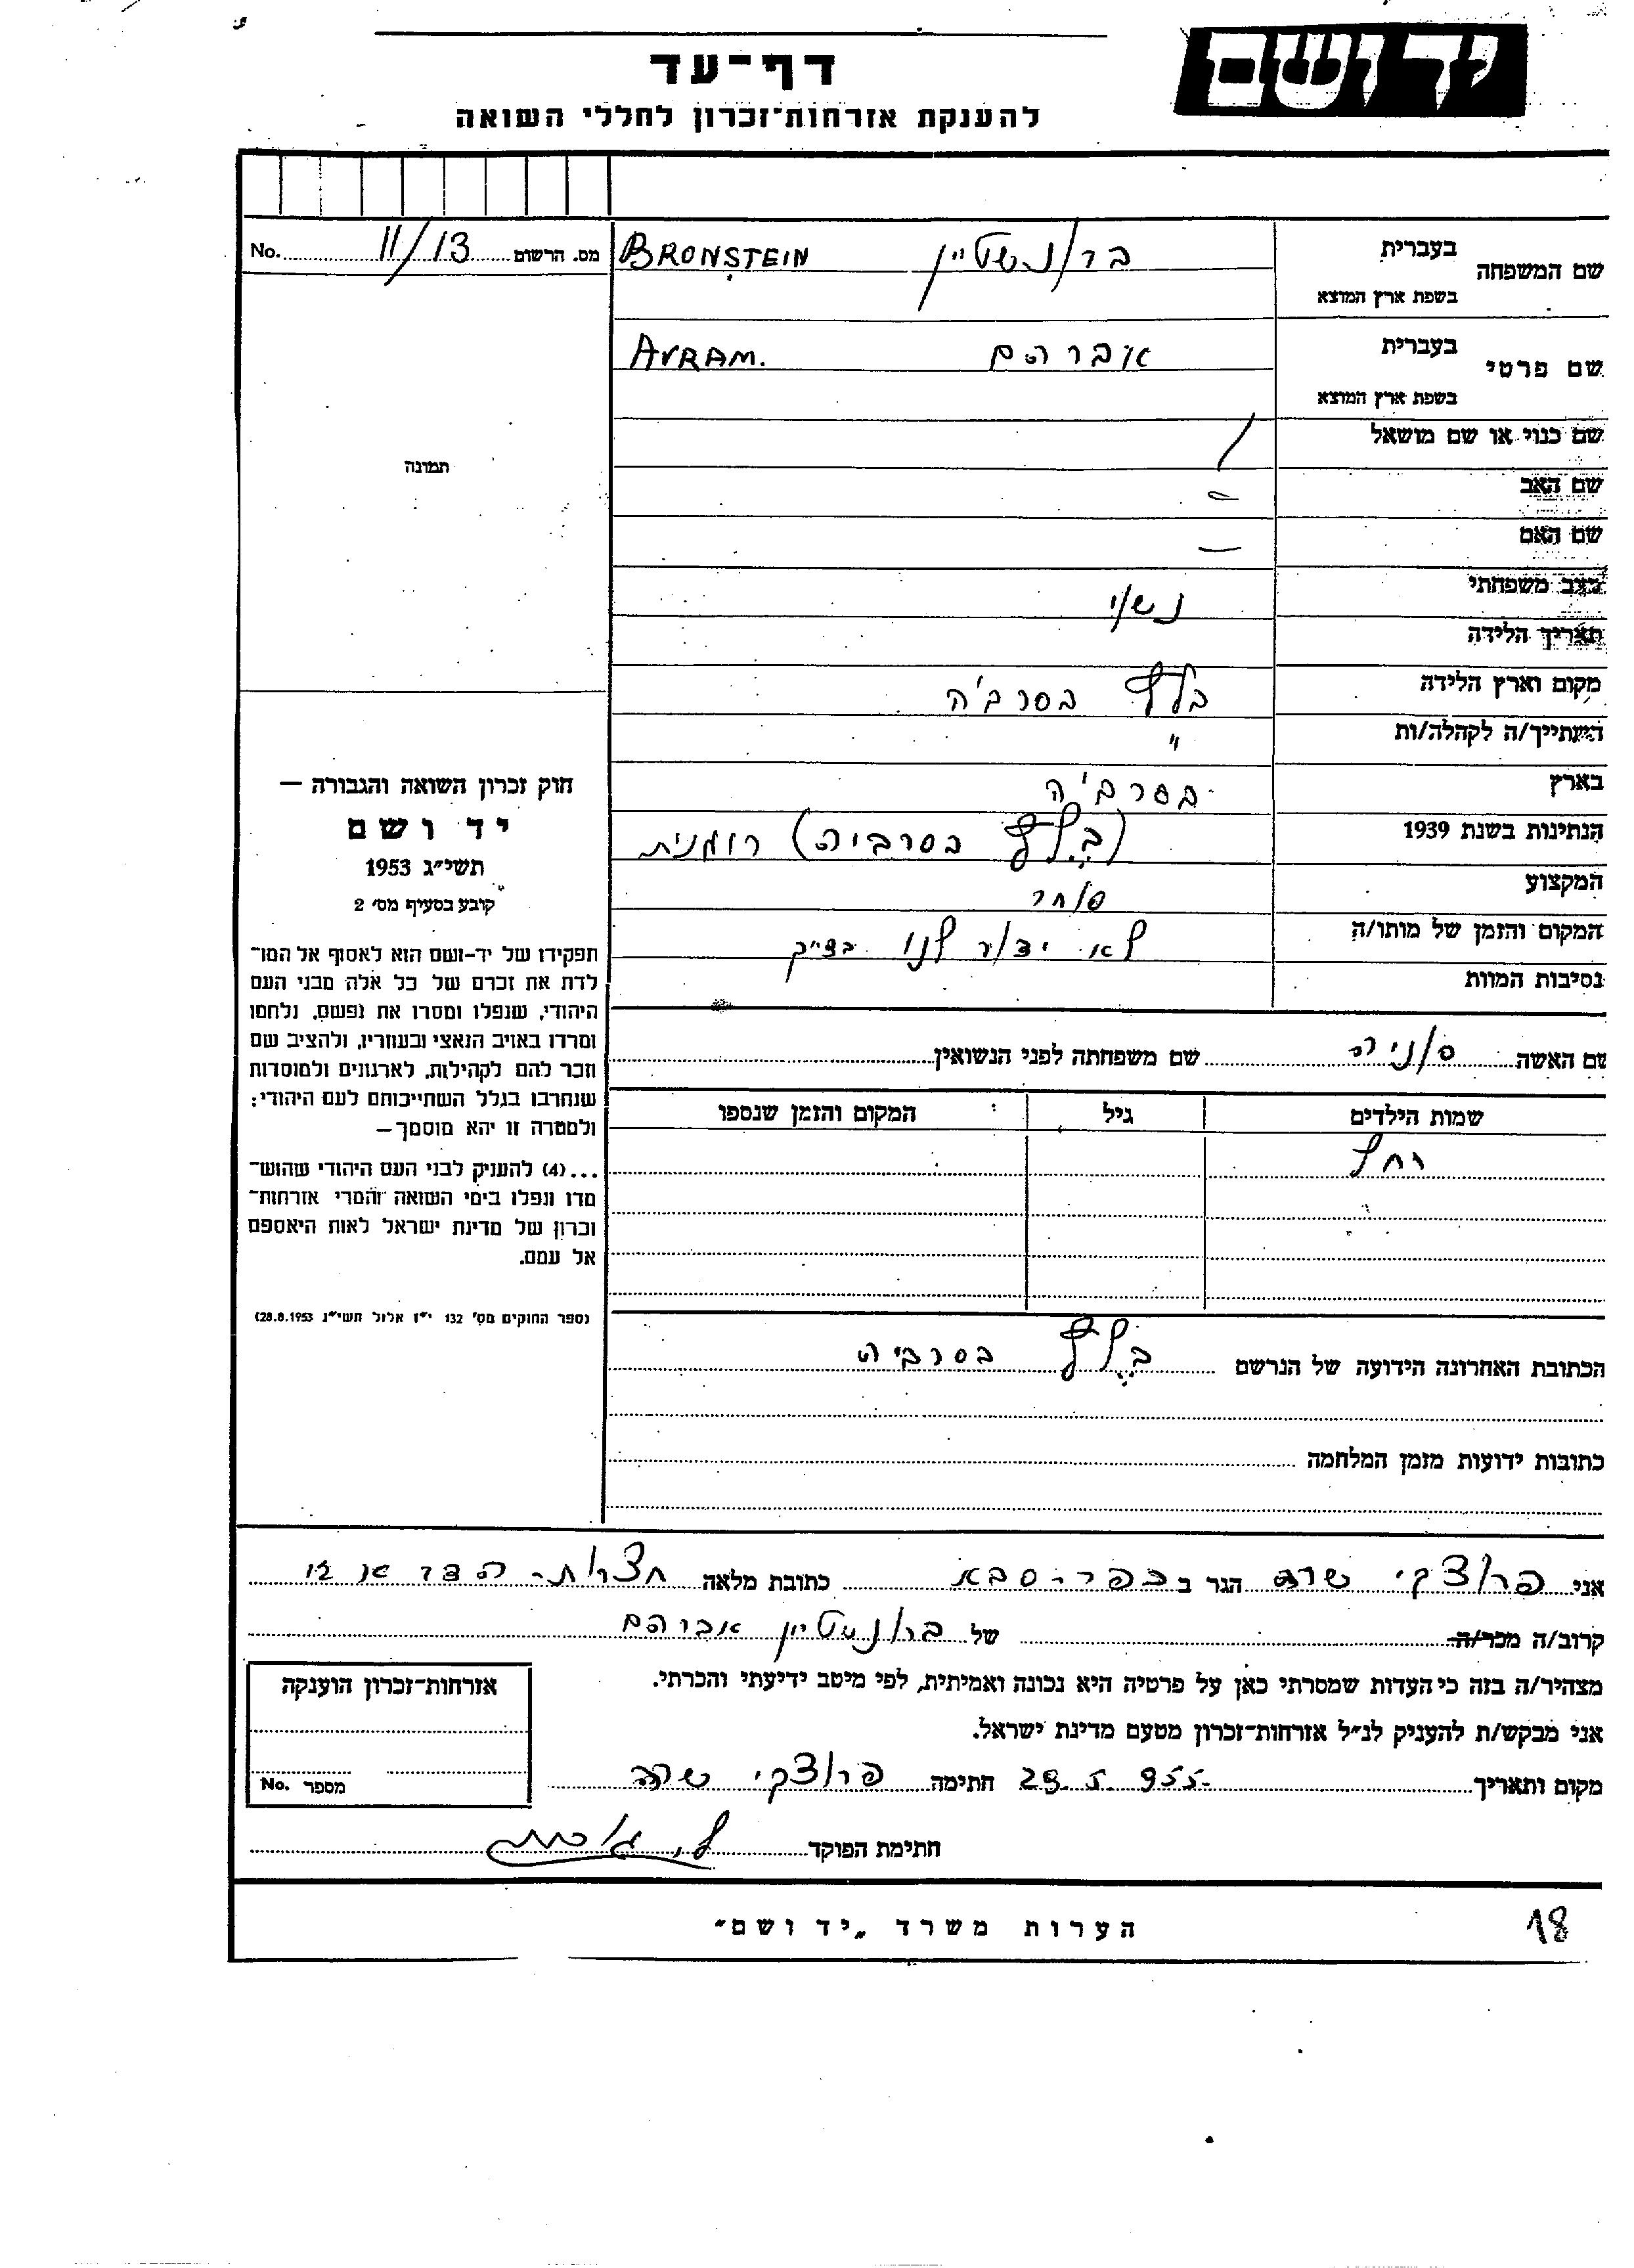 יד ושם
דף-עד
להענקת אזרחות-זכרון לחללי השואה
מס. הרשום 11/13 No.
שם המשפחה
בעברית ברונשטיין BRONSTEIN
בשפת ארץ המוצא
שם פרטי
בעברית אברהם AVRAM.
בשפת ארץ המוצא
שם כנוי או שם מושאל /
שם האב –
שם האם –
מצב משפחתי נשוי
תאריך הלידה
מקום וארץ הלידה בלץ בסרביה
השתייך/ה לקהלה/ות "
בארץ בסרביה
הנתינות בשנת 1939 (בלץ בסרביה) רומנית
המקצוע סוחר
המקום והזמן של מותו/ה לא ידוע לנו בדיוק
נסיבות המוות
שם האשה סוניה שם משפחתה לפני הנשואין
שמות הילדים גיל המקום והזמן שנספו
רחל
הכתובת האחרונה הידועה של הנרשם בלץ בסרביה
כתובות ידועות מזמן המלחמה
תמונה
חוק זכרון השואה והגבורה –
יד ושם
תשי״ג 1953
קובע בסעיף מס׳ 2
תפקידו של יד-ושם הוא לאסוף אל המו־
לדת את זכרם של כל אלה מבני העם
היהודי, שנפלו ומסרו את נפשם, נלחמו
ומרדו באויב הנאצי ובעוזריו, ולהציב שם
וזכר להם לקהילות, לארגונים ולמוסדות
שנחרבו בגלל השתייכותם לעם היהודי;
ולמטרה זו יהא מוסמך –
...(4) להעניק לבני העם היהודי שהוש־
מדו ונפלו בימי השואה והמרי אזרחות־
זכרון של מדינת ישראל לאות היאספם
אל עמם.
(ספר החוקים מס׳ 132 י״ז אלול תשי״ג 28.8.1953)
אני פרוצקי שרה הגר ב כפר-סבא כתובת מלאה חצרות-הדר
קרוב/ה מכר/ה של ברונשטיין אברהם
מצהיר/ה בזה כי העדות שמסרתי כאן על פרטיה היא נכונה ואמיתית, לפי מיטב ידיעתי והכרתי.
אני מבקש/ת להעניק לנ״ל אזרחות-זכרון מטעם מדינת ישראל.
מקום ותאריך 29.5.955 חתימה פרוצקי שרה
חתימת הפוקד
אזרחות-זכרון הוענקה
מספר No.
הערות משרד „יד ושם״
18